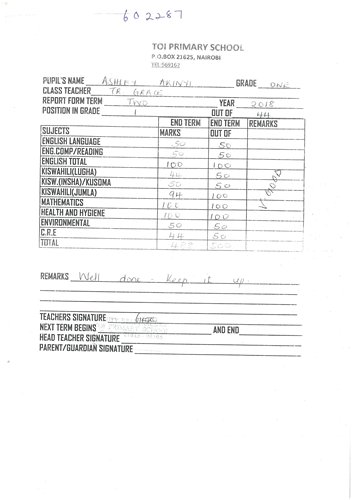 602287
TOI PRIMARY SCHOOL
P.O.BOX 21625, NAIROBI
PUPIL'S NAME ASHLEY AKINYI GRADE ONE
CLASS TEACHER TR GRACE
REPORT FORM TERM TWO YEAR 2018
POSITION IN GRADE 1 OUT OF 44
SUJECTS END TERM MARKS END TERM OUT OF REMARKS
ENGLISH LANGUAGE 50 50
ENG.COMP/READING 50 50
ENGLISH TOTAL 100 100
KISWAHILI(LUGHA) 44 50
KISW.(INSHA)/KUSOMA 50 50
KISWAHILI(JUMLA) 94 100
MATHEMATICS 100 100
HEALTH AND HYGIENE 100 100
ENVIRONMENTAL 50 50
C.R.E 44 50
TOTAL 488 500
V.GOOD
REMARKS Well done - Keep it up
TEACHERS SIGNATURE
NEXT TERM BEGINS AND END
HEAD TEACHER SIGNATURE
PARENT/GUARDIAN SIGNATURE